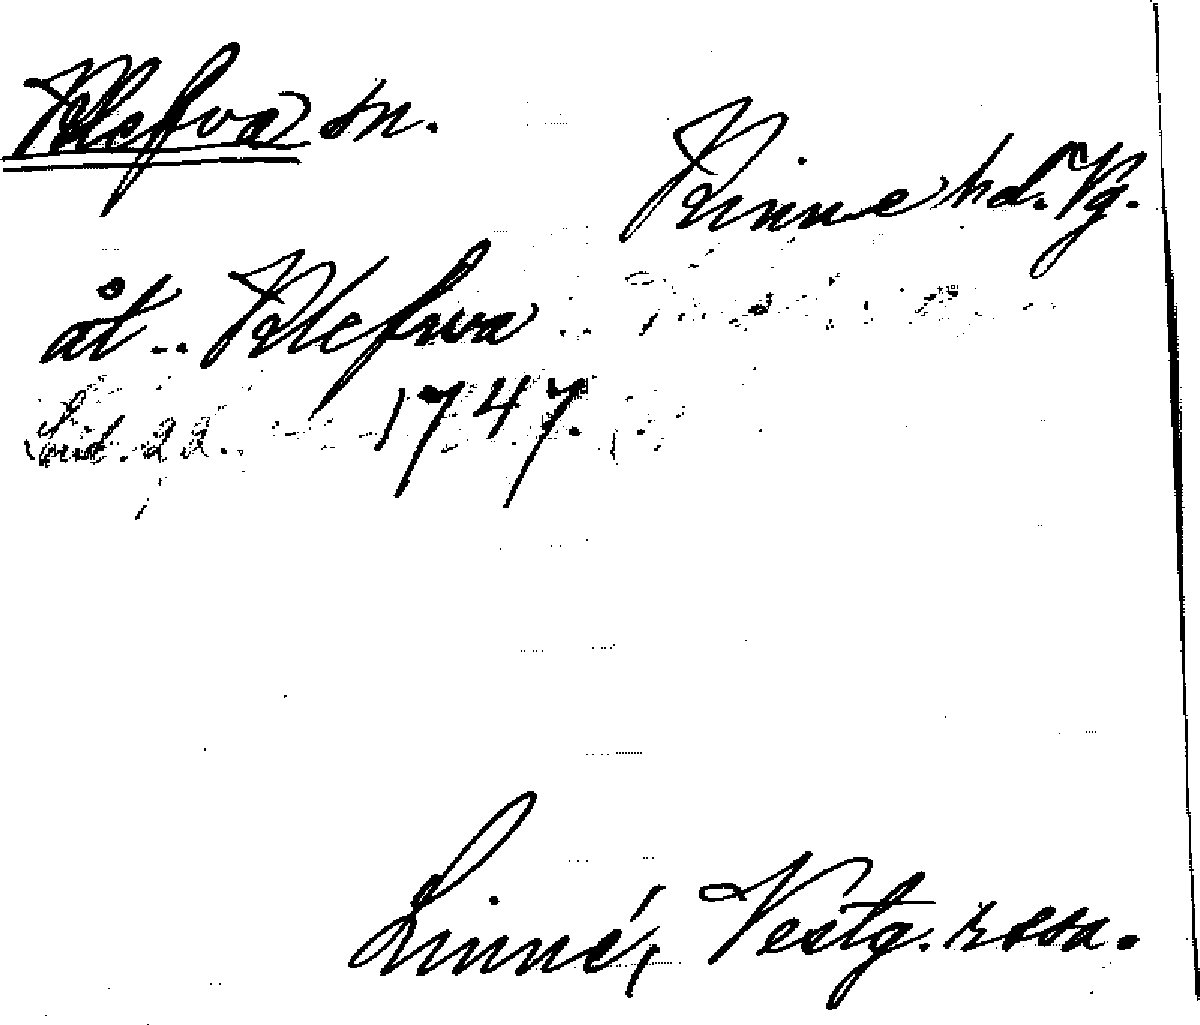 Klefva sn.
Kinne hd. Vg.
åt .. Klefwa
Sid. 22. 1747.
Linné, Vestg. resa.